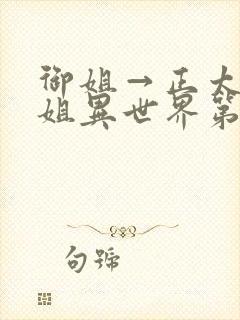 御姐→正太
姐異世界第
句號